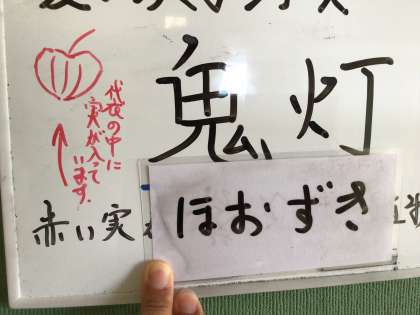 鬼灯
代袋の中に
実が入って
います。
ほおずき
赤い実